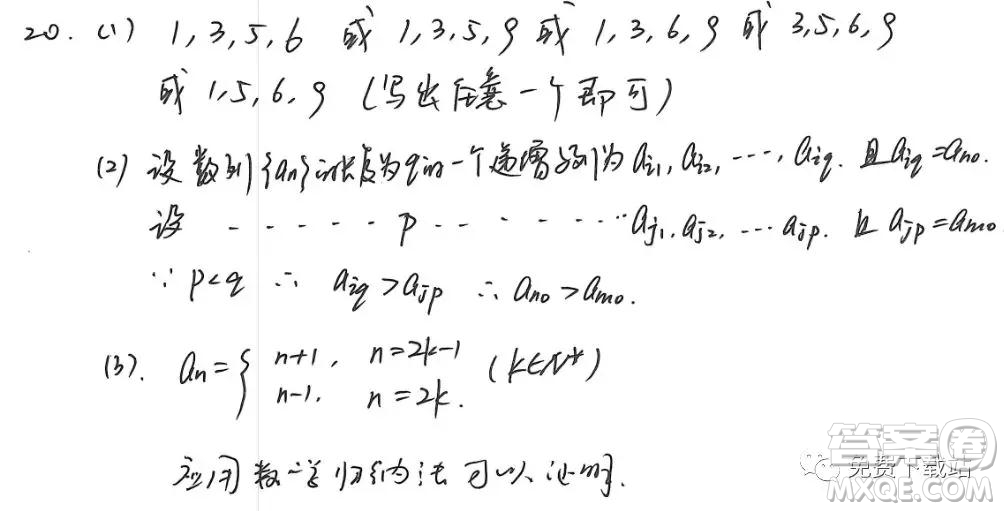 20. (1) 1,3,5,6 或 1,3,5,9 或 1,3,6,9 或 3,5,6,9
或 1,5,6,9 (写出任意一个即可)
(2) 设数列{an}的长度为q的一个递增子列为 ai1, ai2, ···, aiq. 且aiq=an0.
设 - - - - - - p - - - - - - - aj1, aj2, ··· ajp. 且 ajp=am0
∵ p<q ∴ aiq>ajp ∴ an0>am0.
(3). an={ n+1, n=2k-1 (k∈N*)
n-1. n=2k.
应用数学归纳法可以证明.
答案圈
免费下载站
MXQE.COM